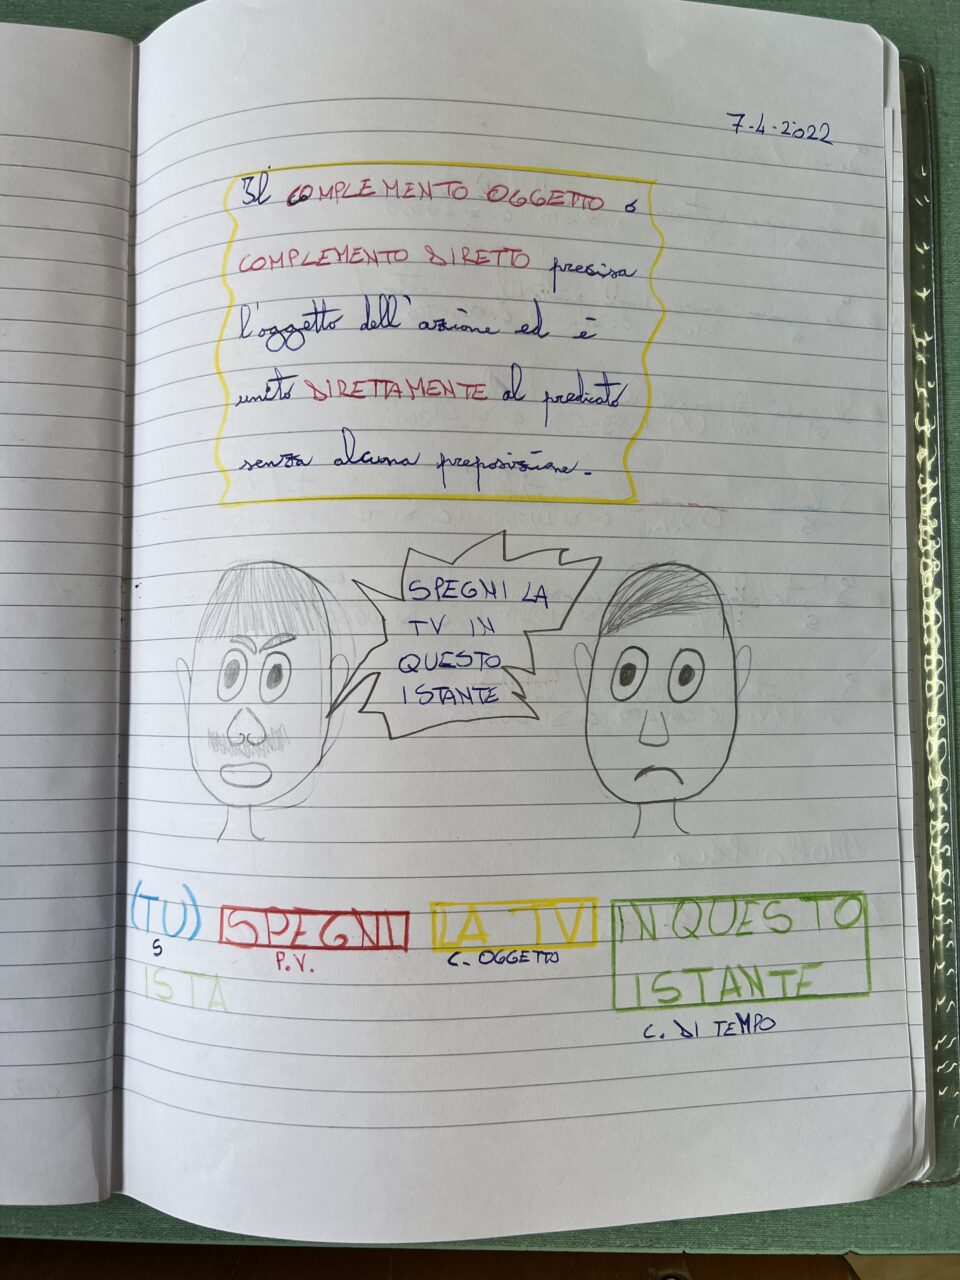 7-4-2022
Il COMPLEMENTO OGGETTO o
COMPLEMENTO DIRETTO precisa
l'oggetto dell'azione ed è
unito DIRETTAMENTE al predicato
senza alcuna preposizione.
SPEGNI LA
TV IN
QUESTO
ISTANTE
(TU) SPEGNI LA TV IN QUESTO
S P.V. C. OGGETTO
ISTA ISTANTE
C. DI TEMPO